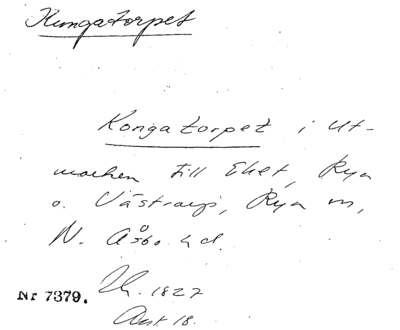 Kungatorpet
Kongatorpet i Ut-
marken till Ehet, Rya
o. Västraryi, Rya sn,
N. Åsbo hd.
Nr 7379. Lh. 1827
Akt 18.